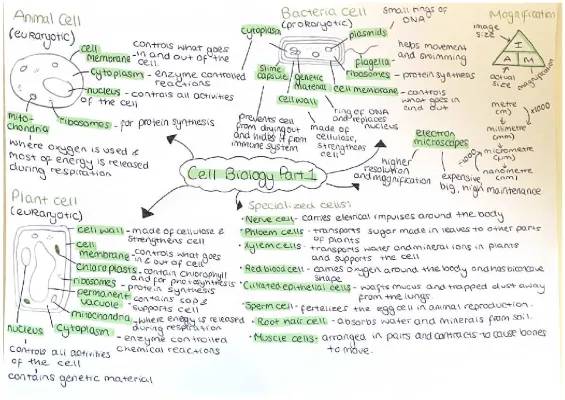 Animal Cell
(eukaryotic)
cell
membrane - controls what goes
in and out of the
cell
cytoplasm - enzyme controlled
reactions
nucleus - controls all activities
of the cell
mito-
chondria
ribosomes - for protein synthesis
where oxygen is used &
most of energy is released
during respiration
Bacteria Cell
(prokaryotic)
small rings of
DNA
cytoplasm
plasmids
flagella - helps movement
and swimming
ribosomes - protein synthesis
slime
capsule
genetic
material
cell membrane - controls
what goes in
and out
cell wall
ring of DNA
and replaces
nucleus
prevents cell
from drying out
and hides it from
immune system
made of
cellulose,
strengthens
cell
Magnification
image
size
I
A M
actual
size
magnification
metre
(m)
x1000
millimetre
(mm)
micrometre
nanometre
(nm)
electron
microscopes
higher
resolution
and magnification
expensive,
big, high maintenance
Cell Biology Part 1
Plant cell
(eukaryotic)
cell wall - made of cellulose &
strengthens cell
cell
membrane - controls what goes
in & out of cell
chloroplasts - contain chlorophyll
and for photosynthesis
ribosomes - protein synthesis
permanent
vacuole - contains sap &
supports cell
mitochondria - where energy is released
during respiration
nucleus
cytoplasm - enzyme controlled
chemical reactions
controls all activities
of the cell
contains genetic material
Specialized cells:
• Nerve cell - carries electrical impulses around the body
• Phloem cells - transports sugar made in leaves to other parts
of plants
• Xylem cells - transports water and mineral ions in plants
and supports the cell
• Red blood cell - carries oxygen around the body and has biconcave
shape
• Ciliated epithelial cells - wafts mucus and trapped dust away
from the lungs
• Sperm cell - fertelizes the egg cell in animal reproduction.
• Root hair cell - absorbs water and minerals from soil.
• Muscle cells - arranged in pairs and contracts to cause bones
to move.